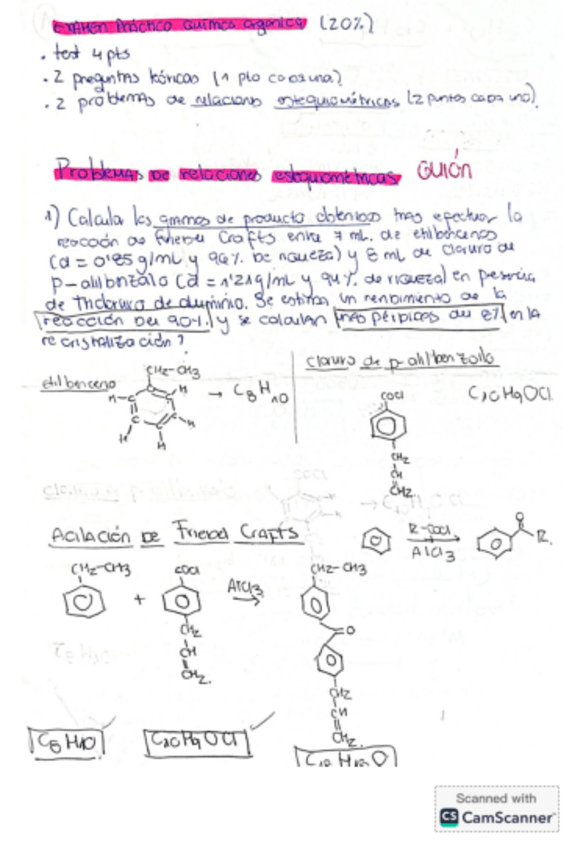 EXAMEN PRÁCTICO QUÍMICA ORGÁNICA (20%)
. test 4 pts
. 2 preguntas teóricas (1 pto cada una)
. 2 problemas de relaciones estequiométricas (2 puntos cada uno)
Problemas de relaciones estequiométricas GUIÓN
1) Calcula los gramos de producto obtenidos tras efectuar la
reacción de Friedel Crafts entre 7 mL de etilbenceno
(d = 0'85 g/mL y 99% de riqueza) y 8 mL de cloruro de
p-alilbenzoilo (d = 1'21 g/mL y 94% de riqueza) en presencia
de Tricloruro de aluminio. Se estima un rendimiento de la
reacción del 90% y se calculan unas pérdidas del 8% en la
recristalización?
etilbenceno CH2-CH3 → C8H10
cloruro de p-alilbenzoilo
COCl C10H9OCl
CH2
CH
CH2
Acilación de Friedel Crafts
R-COCl
AlCl3
O
R
CH2-CH3 + COCl AlCl3 CH2-CH3
O
CH2 CH2
CH CH
CH2 CH2
C8H10 C10H9OCl C18H18O
Scanned with
CS CamScanner